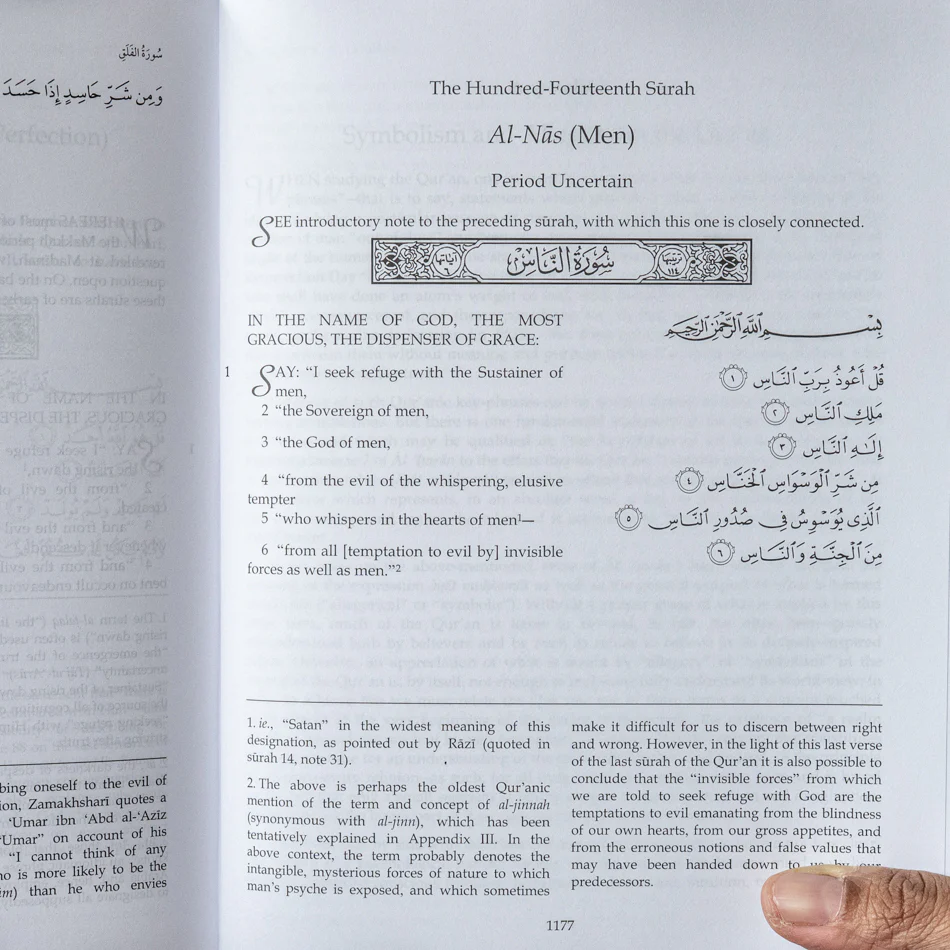 سُورَةُ الفَلَقِ
وَمِن شَرِّ حَاسِدٍ إِذَا حَسَدَ
bing oneself to the evil of
ion, Zamakhsharī quotes a
ʻUmar ibn ʻAbd al-ʻAzīz
ʻUmar” on account of his
“I cannot think of any
ho is more likely to be the
than he who envies
The Hundred-Fourteenth Sūrah
Al-Nās (Men)
Period Uncertain
SEE introductory note to the preceding sūrah, with which this one is closely connected.
آياتها ٦ سُورَةُ النَّاسِ ترتيبها ١١٤
IN THE NAME OF GOD, THE MOST
GRACIOUS, THE DISPENSER OF GRACE:
1 SAY: “I seek refuge with the Sustainer of
men,
2 “the Sovereign of men,
3 “the God of men,
4 “from the evil of the whispering, elusive
tempter
5 “who whispers in the hearts of men¹—
6 “from all [temptation to evil by] invisible
forces as well as men.”²
بِسْمِ اللَّهِ الرَّحْمَٰنِ الرَّحِيمِ
قُلْ أَعُوذُ بِرَبِّ النَّاسِ ١
مَلِكِ النَّاسِ ٢
إِلَٰهِ النَّاسِ ٣
مِن شَرِّ الْوَسْوَاسِ الْخَنَّاسِ ٤
الَّذِي يُوَسْوِسُ فِي صُدُورِ النَّاسِ ٥
مِنَ الْجِنَّةِ وَالنَّاسِ ٦
1. ie., “Satan” in the widest meaning of this
designation, as pointed out by Rāzī (quoted in
sūrah 14, note 31).
2. The above is perhaps the oldest Qurʼanic
mention of the term and concept of al-jinnah
(synonymous with al-jinn), which has been
tentatively explained in Appendix III. In the
above context, the term probably denotes the
intangible, mysterious forces of nature to which
man’s psyche is exposed, and which sometimes
make it difficult for us to discern between right
and wrong. However, in the light of this last verse
of the last sūrah of the Qurʼan it is also possible to
conclude that the “invisible forces” from which
we are told to seek refuge with God are the
temptations to evil emanating from the blindness
of our own hearts, from our gross appetites, and
from the erroneous notions and false values that
may have been handed down to us by our
predecessors.
1177